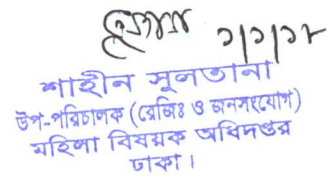 ১/১/১৮
শাহীন সুলতানা
উপ-পরিচালক (রেজিঃ ও জনসংযোগ)
মহিলা বিষয়ক অধিদপ্তর
ঢাকা।